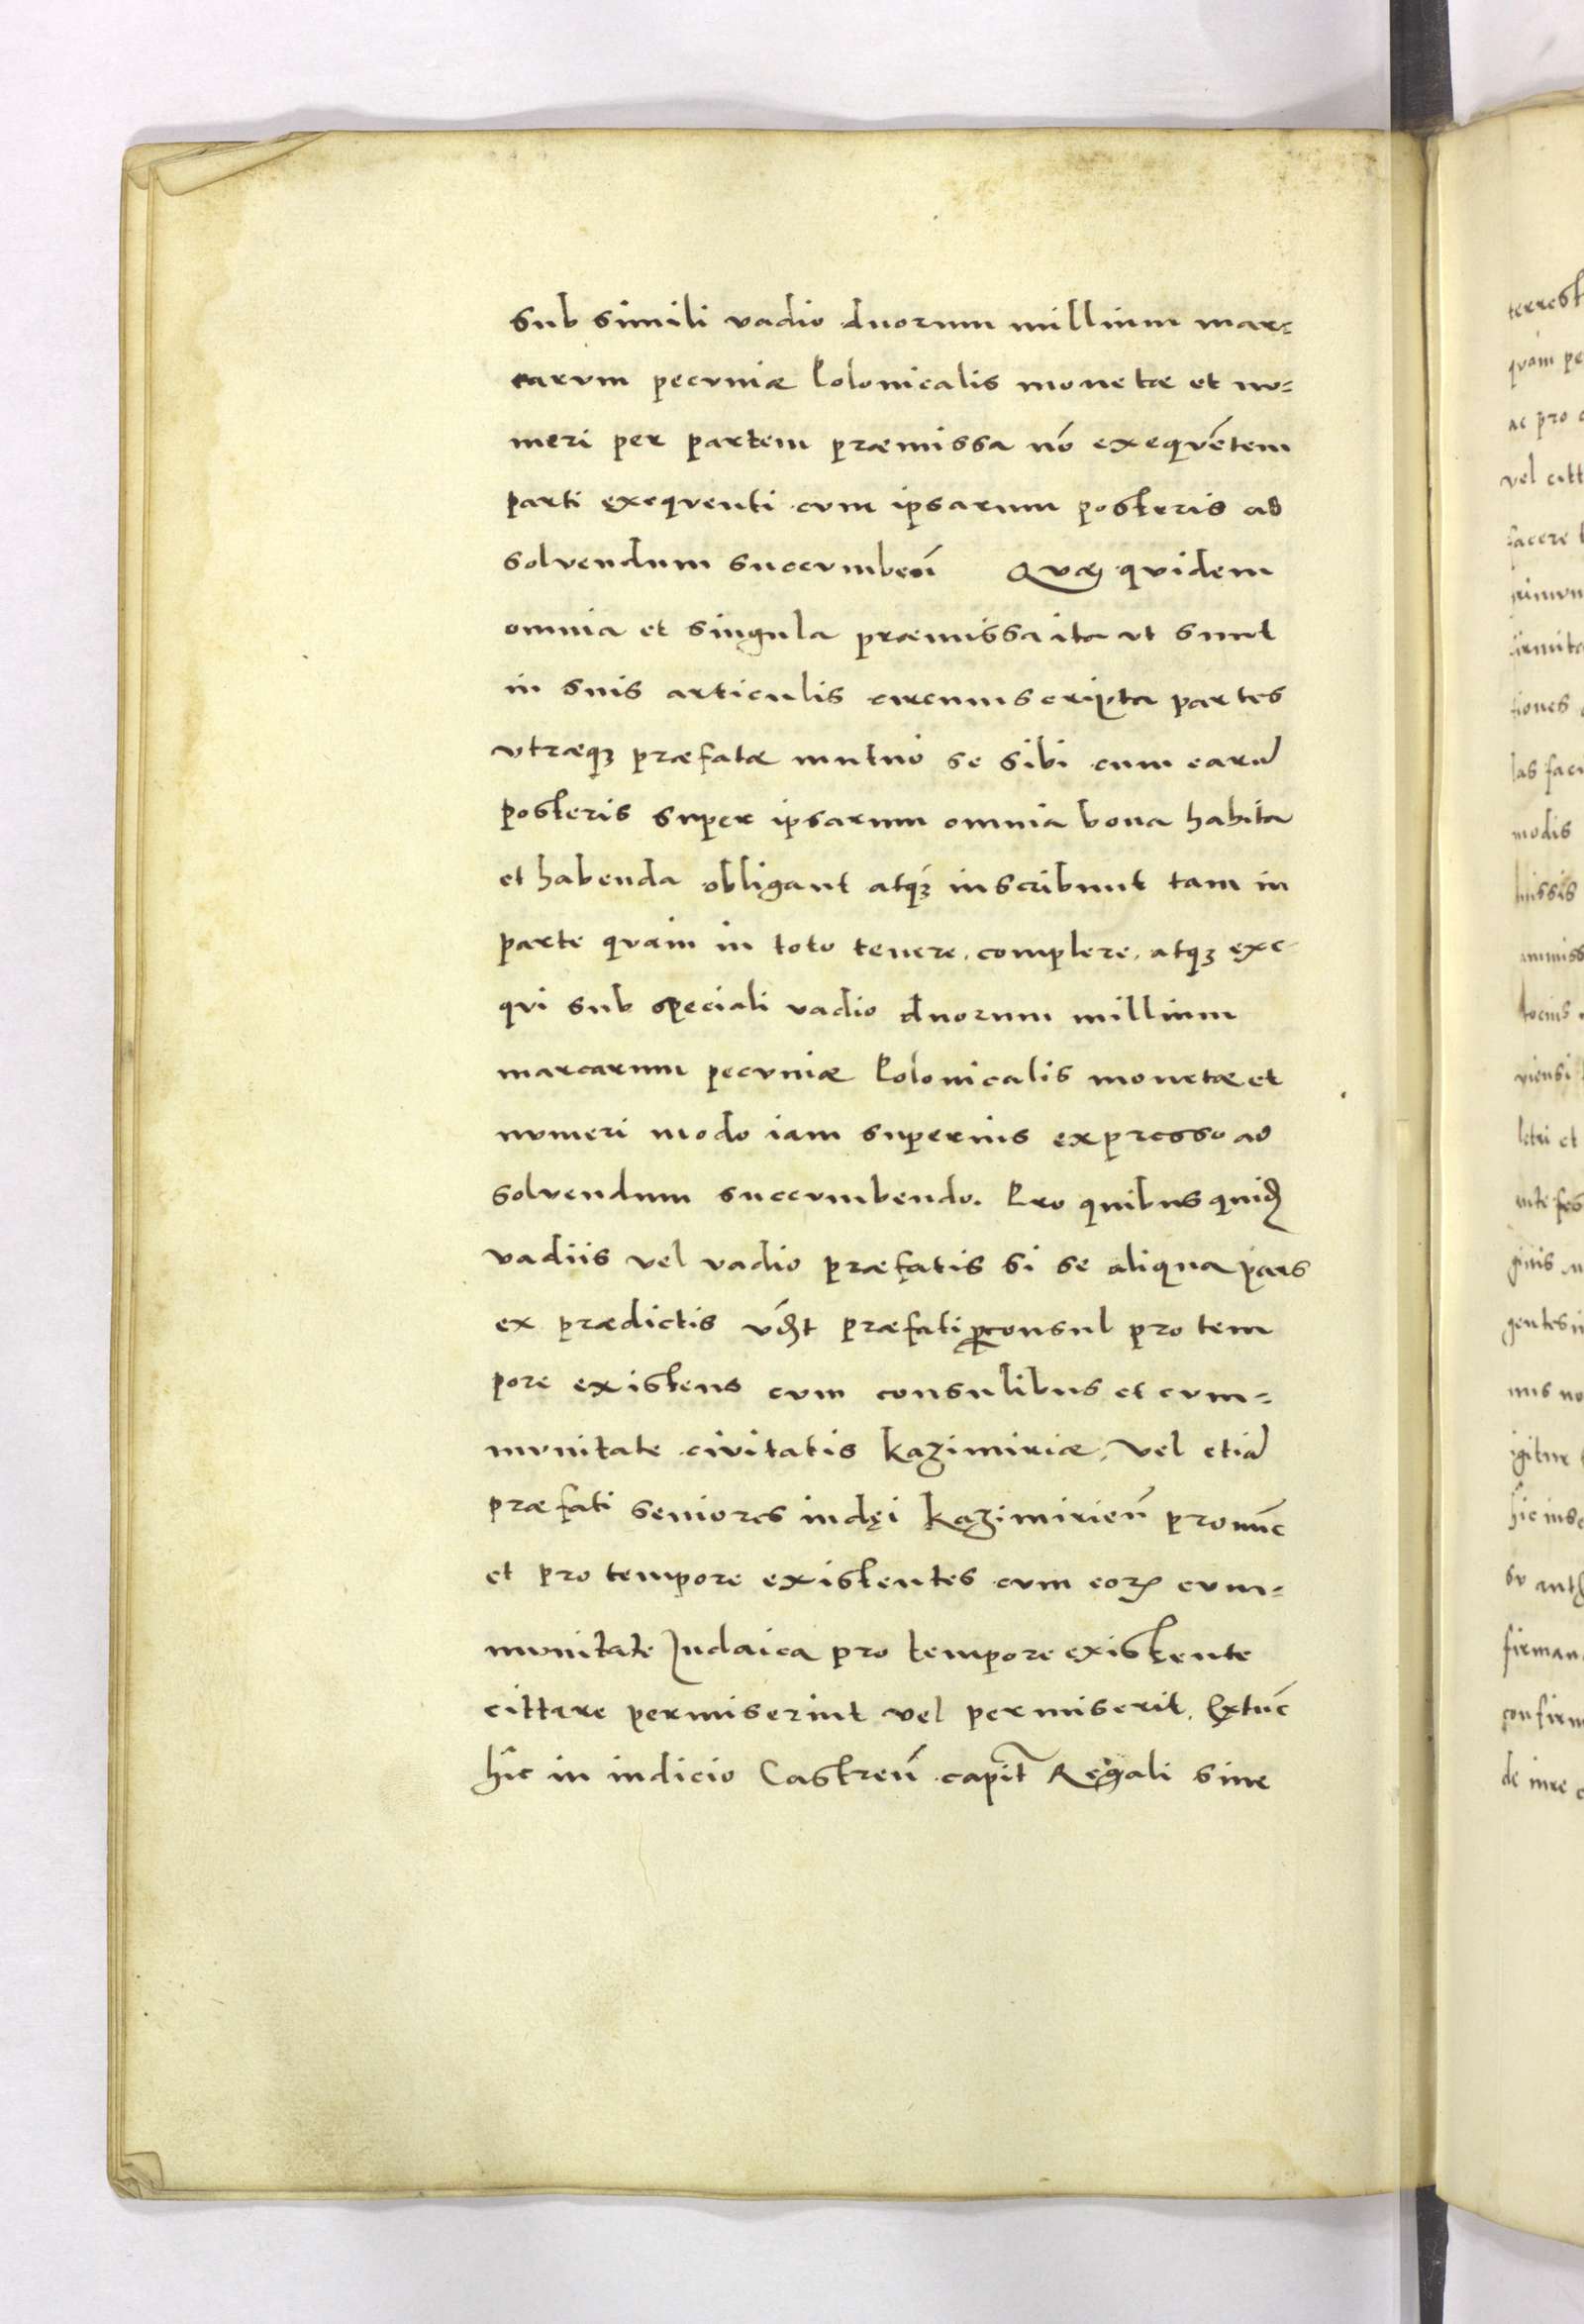 sub simili vadio duorum millium mar=
carvm pecvniæ Polonicalis monetæ et nv=
meri per partem præmissa nō exeqvētem
parti exeqventi cvm ipsarum posteris ad
solvendum succvmbeñ Qvæ qvidem
omnia et singula præmissa ita vt sunt
in suis articulis circumscripta partes
vtræqꝫ præfatæ mutuo se sibi cum earū
posteris super ipsarum omnia bona habita
et habenda obligant atqꝫ inscribunt tam in
parte qvam in toto tenere, complere, atqꝫ exe-
qvi sub speciali vadio duorum millium
marcarum pecvniæ Polonicalis monetæ et
nvmeri modo iam superius expresso ad
solvendum succvmbendo. Pro quibus quidē
vadiis vel vadio præfatis si se aliqua pars
ex prædictis præfati ꝓconsul pro tem
pore existens cvm consulibus et cvm=
mvnitate civitatis kazimiriæ, vel etiā
præfati seniores iudęi kazimirień pronūc
et pro tempore existentes cvm eoꝝ cvm=
mvnitate Judaica pro tempore existente
cittare permiserint vel permiserit, Extūc
hîc in iudicio Castreñ capit̄ Regali sine
terrest
qvam pe
ac pro
vel citt
facere
modis
igitur
firman
confirm
de iure